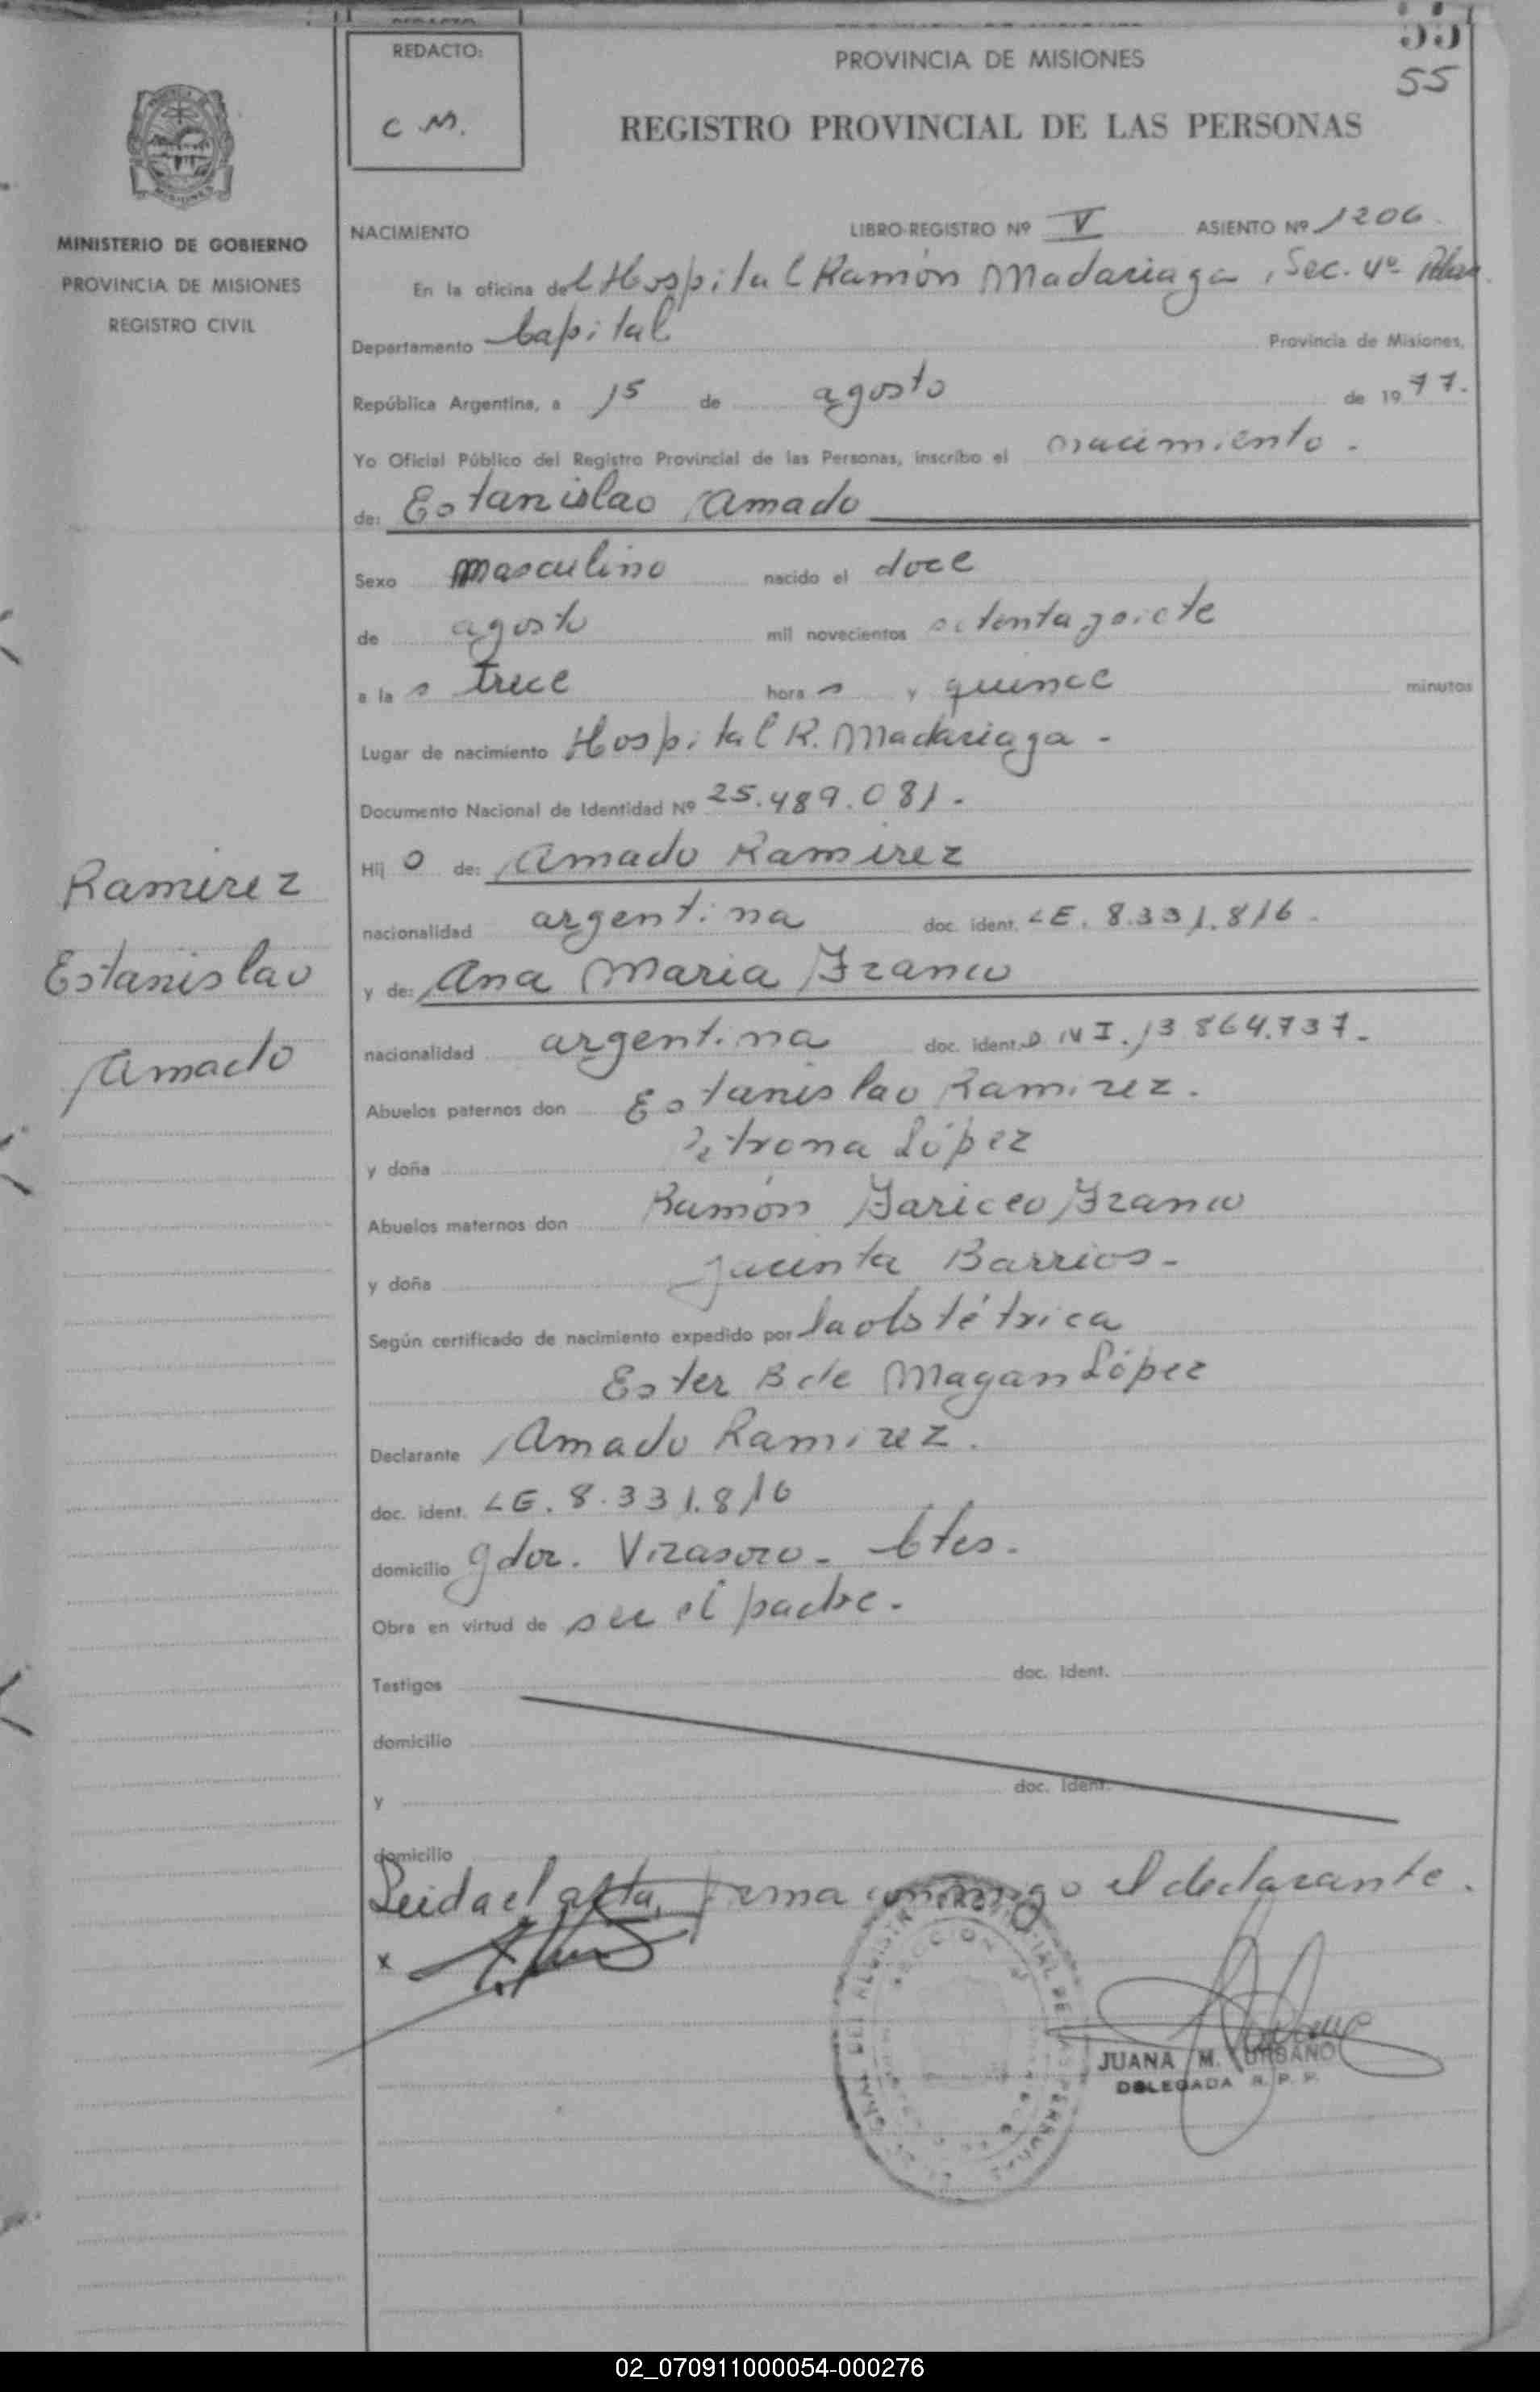 55
REDACTO:
C.M.
PROVINCIA DE MISIONES
55
REGISTRO PROVINCIAL DE LAS PERSONAS
MINISTERIO DE GOBIERNO
PROVINCIA DE MISIONES
REGISTRO CIVIL
NACIMIENTO LIBRO-REGISTRO Nº V ASIENTO Nº 1206.
En la oficina del Hospital Ramón Madariaga, Sec. 4º
Departamento Capital Provincia de Misiones,
República Argentina, a 15 de agosto de 1977.
Yo Oficial Público del Registro Provincial de las Personas, inscribo el nacimiento.
de: Estanislao Amado
Sexo masculino nacido el doce
de agosto mil novecientos setenta y siete
a las trece horas y quince minutos
Lugar de nacimiento Hospital R. Madariaga -
Documento Nacional de Identidad Nº 25.489.081.
Hijo de: Amado Ramirez
nacionalidad argentina doc. ident. LE. 8.331.816.
y de: Ana Maria Franco
nacionalidad argentina doc. ident. DNI. 13864.737.
Abuelos paternos don Estanislao Ramirez.
y doña Petrona López
Abuelos maternos don Ramón Franco
y doña Jacinta Barrios -
Según certificado de nacimiento expedido por la obstétrica
Ester B de Magan López
Declarante Amado Ramirez.
doc. ident. LE. 8.331.816
domicilio Gdor. Virasoro - Ctes.
Obra en virtud de ser el padre.
Testigos doc. Ident.
domicilio
y doc. Ident.
domicilio
Leida el acta, firma conmigo el declarante.
x
JUANA M. URBANO
DELEGADA R. P. P.
Ramirez
Estanislao
Amado
02_070911000054-000276